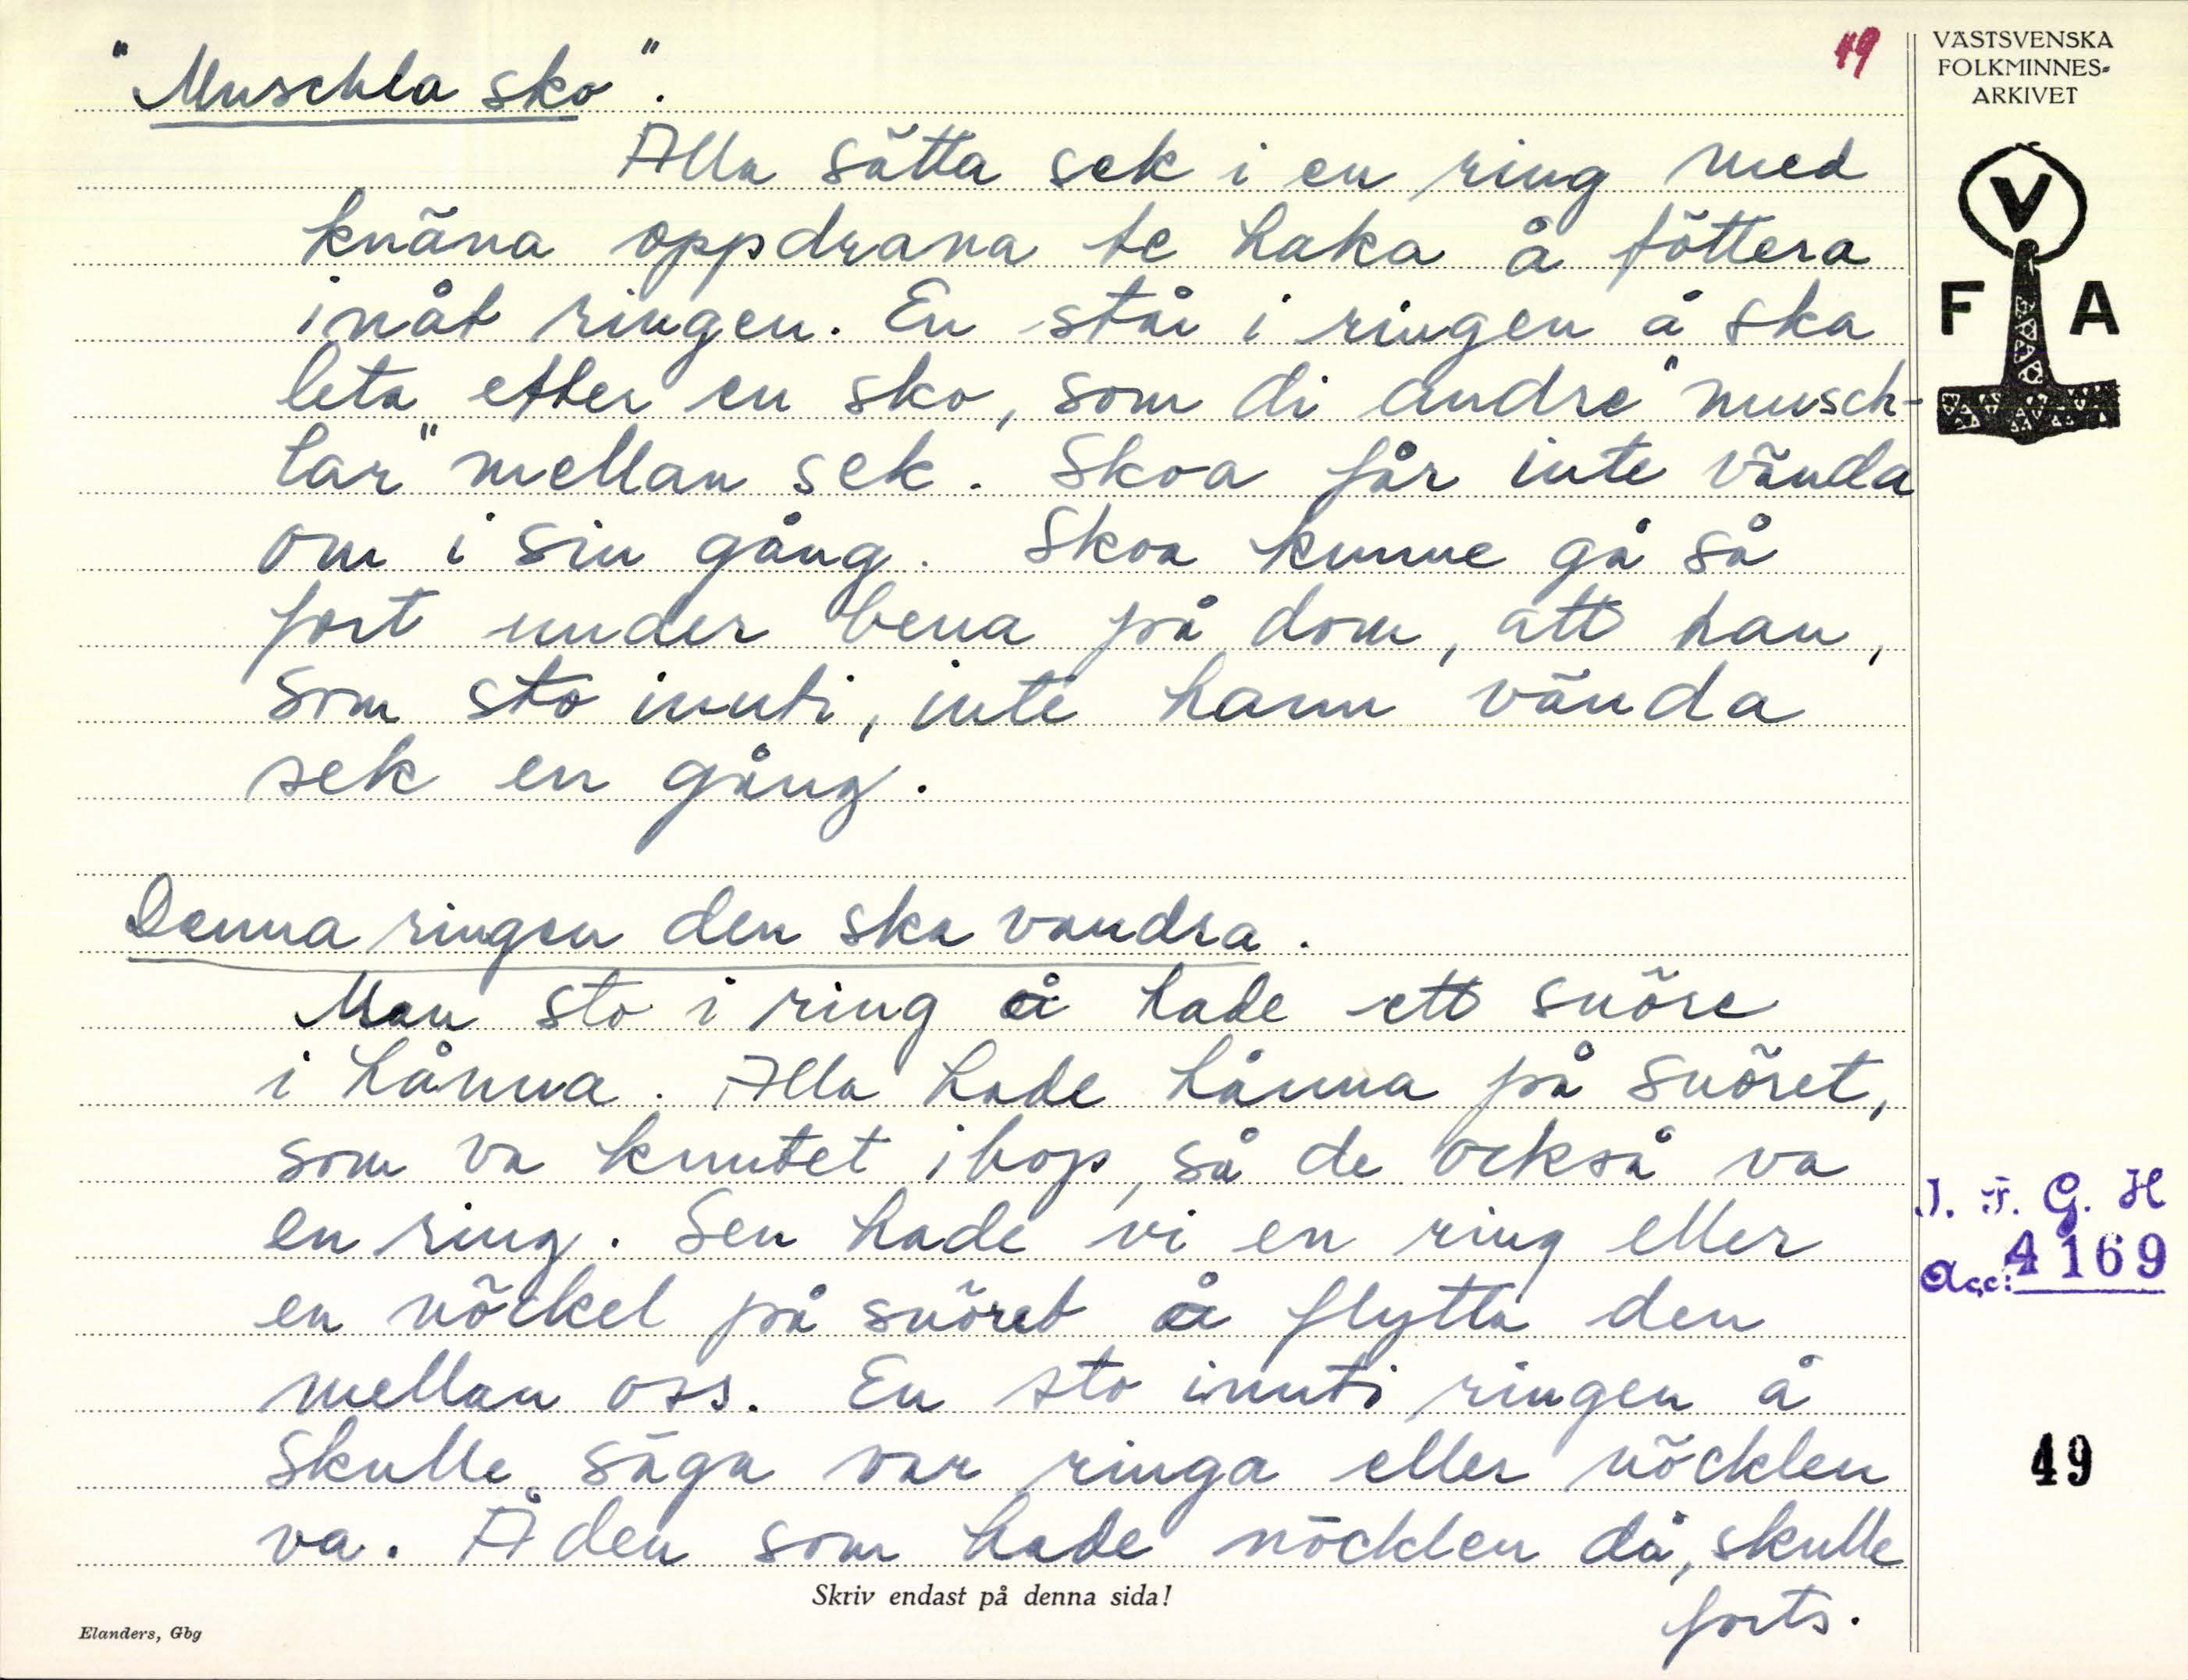 "Muschla sko".
49
VÄSTSVENSKA
FOLKMINNES-
ARKIVET
Alla sätta sek i en ring med
knäna oppdrana te haka å föttera
inåt ringen. En står i ringen å ska
leta etter en sko, som di andre "musch-
lar" mellan sek. Skoa får inte vända
om i sin gång. Skoa kunne gå så
fort under bena på dom, att han,
som sto inuti, inte hann vända
sek en gång.
V
F A
Denna ringen den ska vandra.
Man sto i ring å hade ett snöre
i hånna. Alla hade hånna på snöret,
som va knutet ihop, så de också va
en ring. Sen hade vi en ring eller
en nöckel på snöret å flytta den
mellan oss. En sto inuti ringen å
skulle säga var ringa eller nöcklen
va. Å den som hade nöcklen då, skulle
forts.
I. F. G. H
Acc: 4169
49
Skriv endast på denna sida!
Elanders, Gbg